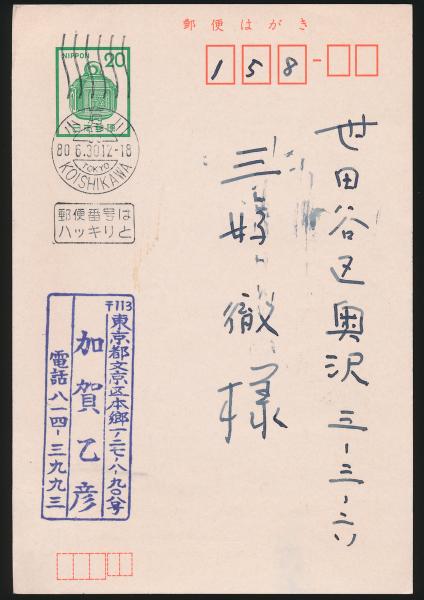 郵便はがき
158-
NIPPON 20
日本郵便
80 6.30 12-18
TOKYO
KOISHIKAWA
郵便番号は
ハッキリと
世田谷区奥沢三-三-二八
三好徹様
〒113
東京都文京区本郷一-二七-八-九〇八号
加賀乙彦
電話八一四-三九九三